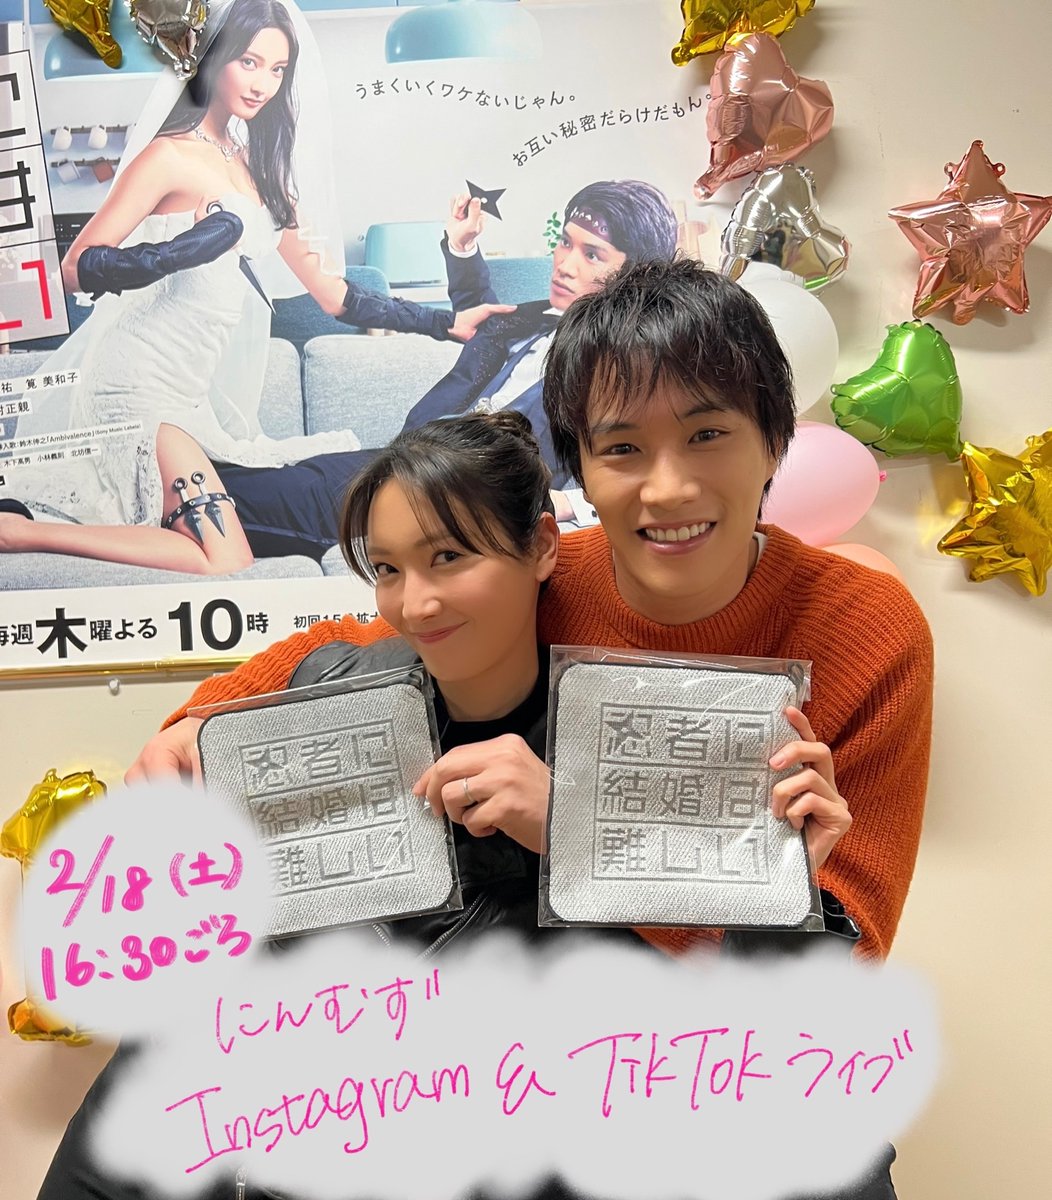 うまくいくワケないじゃん。
お互い秘密だらけだもん。
祐 筧 美和子
村正親
挿入歌:鈴木伸之「Ambivalence」(Sony Music Labels)
木下高男 小林義則 北坊信一
毎週木曜よる10時
忍者に
結婚は
難しい
忍者に
結婚は
難しい
2/18(土)
16:30ごろ
にんむず
Instagram & TikTok ライブ